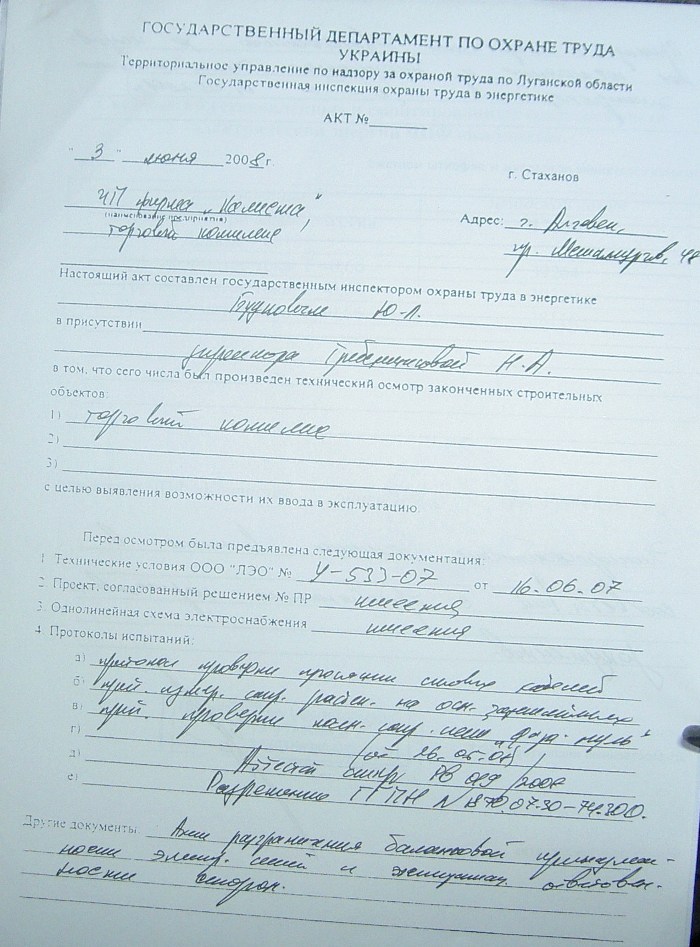 ГОСУДАРСТВЕННЫЙ ДЕПАРТАМЕНТ ПО ОХРАНЕ ТРУДА
УКРАИНЫ
Территориальное управление по надзору за охраной труда по Луганской области
Государственная инспекция охраны труда в энергетике
АКТ №
" 3 " июня 2008 г
г. Стаханов
ЧП фирма „Комета"
(наименование предприятия)
торговый комплекс
Адрес: г. Алчевск,
пр. Металлургов, 48
Настоящий акт составлен государственным инспектором охраны труда в энергетике
Ю.Л.
в присутствии
директора Н.А.
в том, что сего числа был произведен технический осмотр законченных строительных
объектов:
1) торговый комплекс
2)
3)
с целью выявления возможности их ввода в эксплуатацию.
Перед осмотром была предъявлена следующая документация:
1. Технические условия ООО "ЛЭО" № У-533-07 от 16.06.07
2. Проект, согласованный решением № ПР имеется
3. Однолинейная схема электроснабжения имеется
4. Протоколы испытаний:
а) протокол проверки изоляции силовых кабелей
б) прот. измер. сопр. растек. на осн. заземлителях
в) прот. проверки полн. сопр. цепи "фаза-нуль"
г) (от 26.05.08)
д) Аттестат РВ 2006
е) Разрешение № 870.07.30-74.30.0.
Другие документы: Акт разграничения балансовой принадлеж-
ности электр. сетей и эксплуатац. ответствен-
ности сторон.